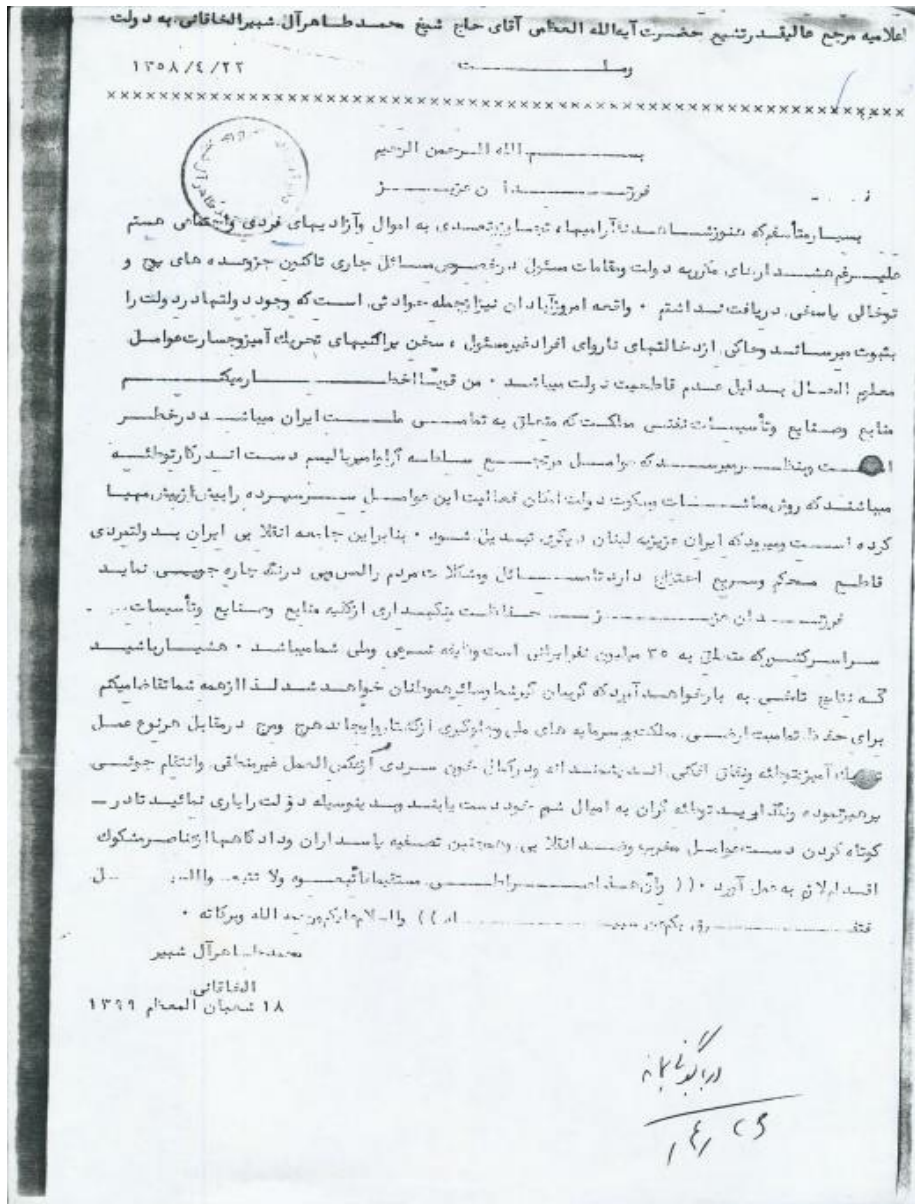 اعلامیه مرجع عالیقدر تشیع حضرت آیه‌الله العظمی آقای حاج شیخ محمد طاهر آل شبیر الخاقانی به دولت
وملت
۱۳۵۸/۴/۲۲
××××××××××××××××××××××××××××××××××××××××××××××××
بسم الله الرحمن الرحیم
فرزندان عزیز
بسیار متأسفم که هنوز شاهد ناآرامیها، تجاوز و تعدی به اموال وآزادیهای فردی واجتماعی هستم
علیرغم هشدارهای مکرر به دولت ومقامات مسئول درخصوص مسائل جاری تاکنین جز وعده های پوچ و
توخالی پاسخی دریافت نداشتم ۰ واقعه امروزآبادان نیزازجمله حوادثی است که وجود دولتهادر دولت را
بثبوت میرساند وحاکی ازدخالتهای ناروای افراد غیرمسئول ، سخن پراکنیهای تحریک آمیزوجسارت عوامل
معلوم الحال بدلیل عدم قاطعیت دولت میباشد ۰ من قویا اخطار میکنم
منابع وصنایع وتأسیسات نفتی مملکت که متعلق به تمامی ملت ایران میباشد درخطر
است وبنظر میرسد که عوامل مرتجع سلطه گرا وامپریالیسم دست اندرکار توطئه
میباشند که روش مماشات وسکوت دولت امکان فعالیت این عوامل سرسپرده را بیش ازپیش مهیا
کرده است ومیرود که ایران عزیز به لبنان دیگری تبدیل شود ۰ بنابراین جامعه انقلابی ایران بدولتمردی
قاطع محکم وسریع احتیاج دارد تا مسائل ومشکلات مردم رالمس وبی درنگ چاره جویی نماید
فرزندان عزیز حفاظت ونگهداری ازکلیه منابع وصنایع وتأسیسات
سراسرکشورکه متعلق به ۳۵ میلیون نفرایرانی است وظیفه شرعی وملی شما میباشد ۰ هشیارباشید
که نتایج تلخی به بارخواهد آورد که گریبان گیرشما وسایر هموطنان خواهد شد لذا ازهمه شما تقاضا میکنم
برای حفظ تمامیت ارضی مملکت وسرمایه های ملی وجلوگیری ازکشتار وایجاد هرج ومرج درمقابل هرنوع عمل
تحریک آمیز توطئه ونفاق افکنی اندیشمندانه ودرکمال خون سردی ازعکس العمل غیرمنطقی وانتقام جوئی
پرهیزنموده ونگذارید توطئه گران به امیال شوم خود دست یابند وبدینوسیله دولت رایاری نمائید تا در ـ
کوتاه کردن دست عوامل مخرب وضد انقلابی وهمچنین تصفیه پاسداران ودادگاهها ازعناصر مشکوک
اقدام لازم به عمل آورد ۰ (( وان هذا صراطی مستقیما فاتبعوه ولا تتبعوا السبل
فتفرق بکم عن سبیله )) والسلام علیکم ورحمه الله وبرکاته ۰
محمد طاهرآل شبیر
الخاقانی
۱۸ شعبان المعظم ۱۳۹۹